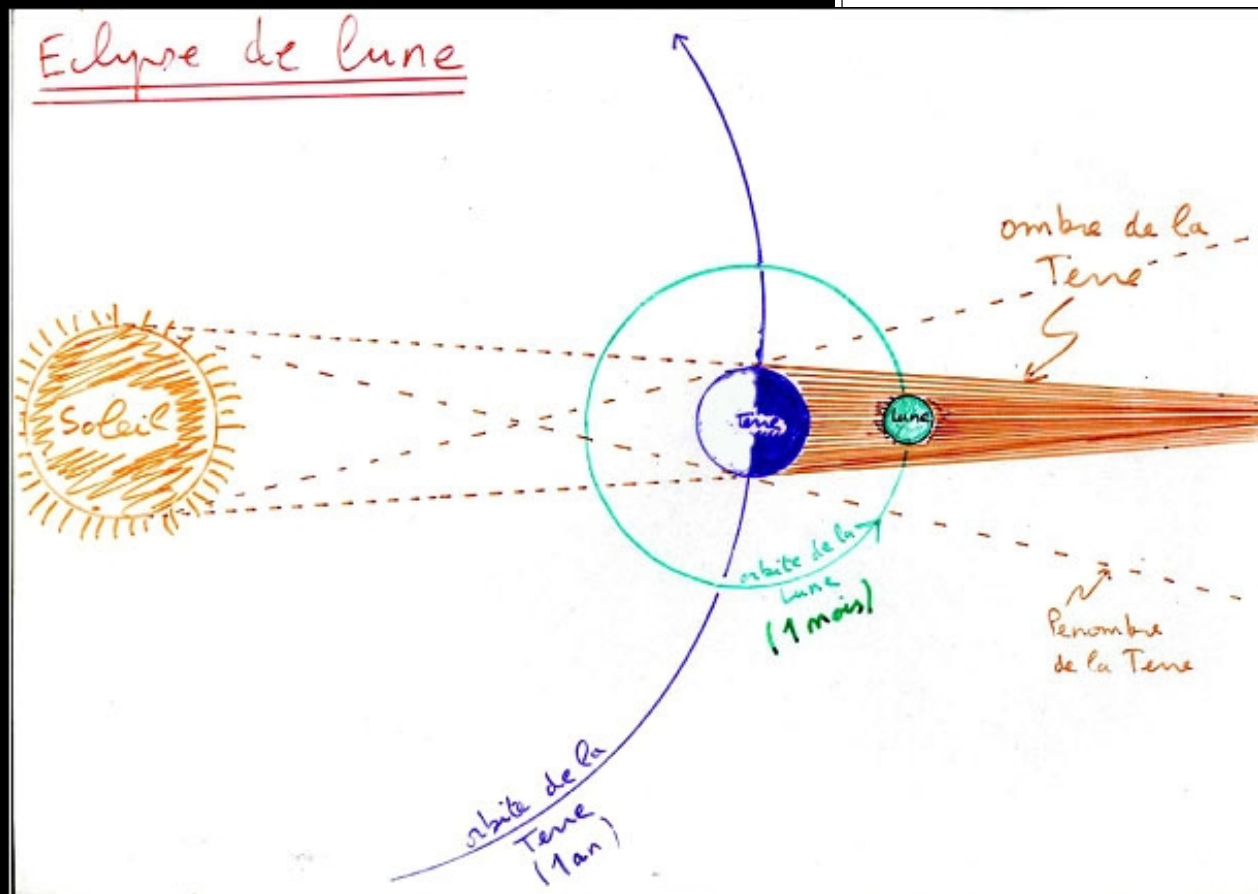 Eclipse de lune
ombre de la
Terre
Soleil
Terre
Lune
orbite de la
Lune
(1 mois)
Penombre
de la Terre
orbite de la
Terre
(1 an)